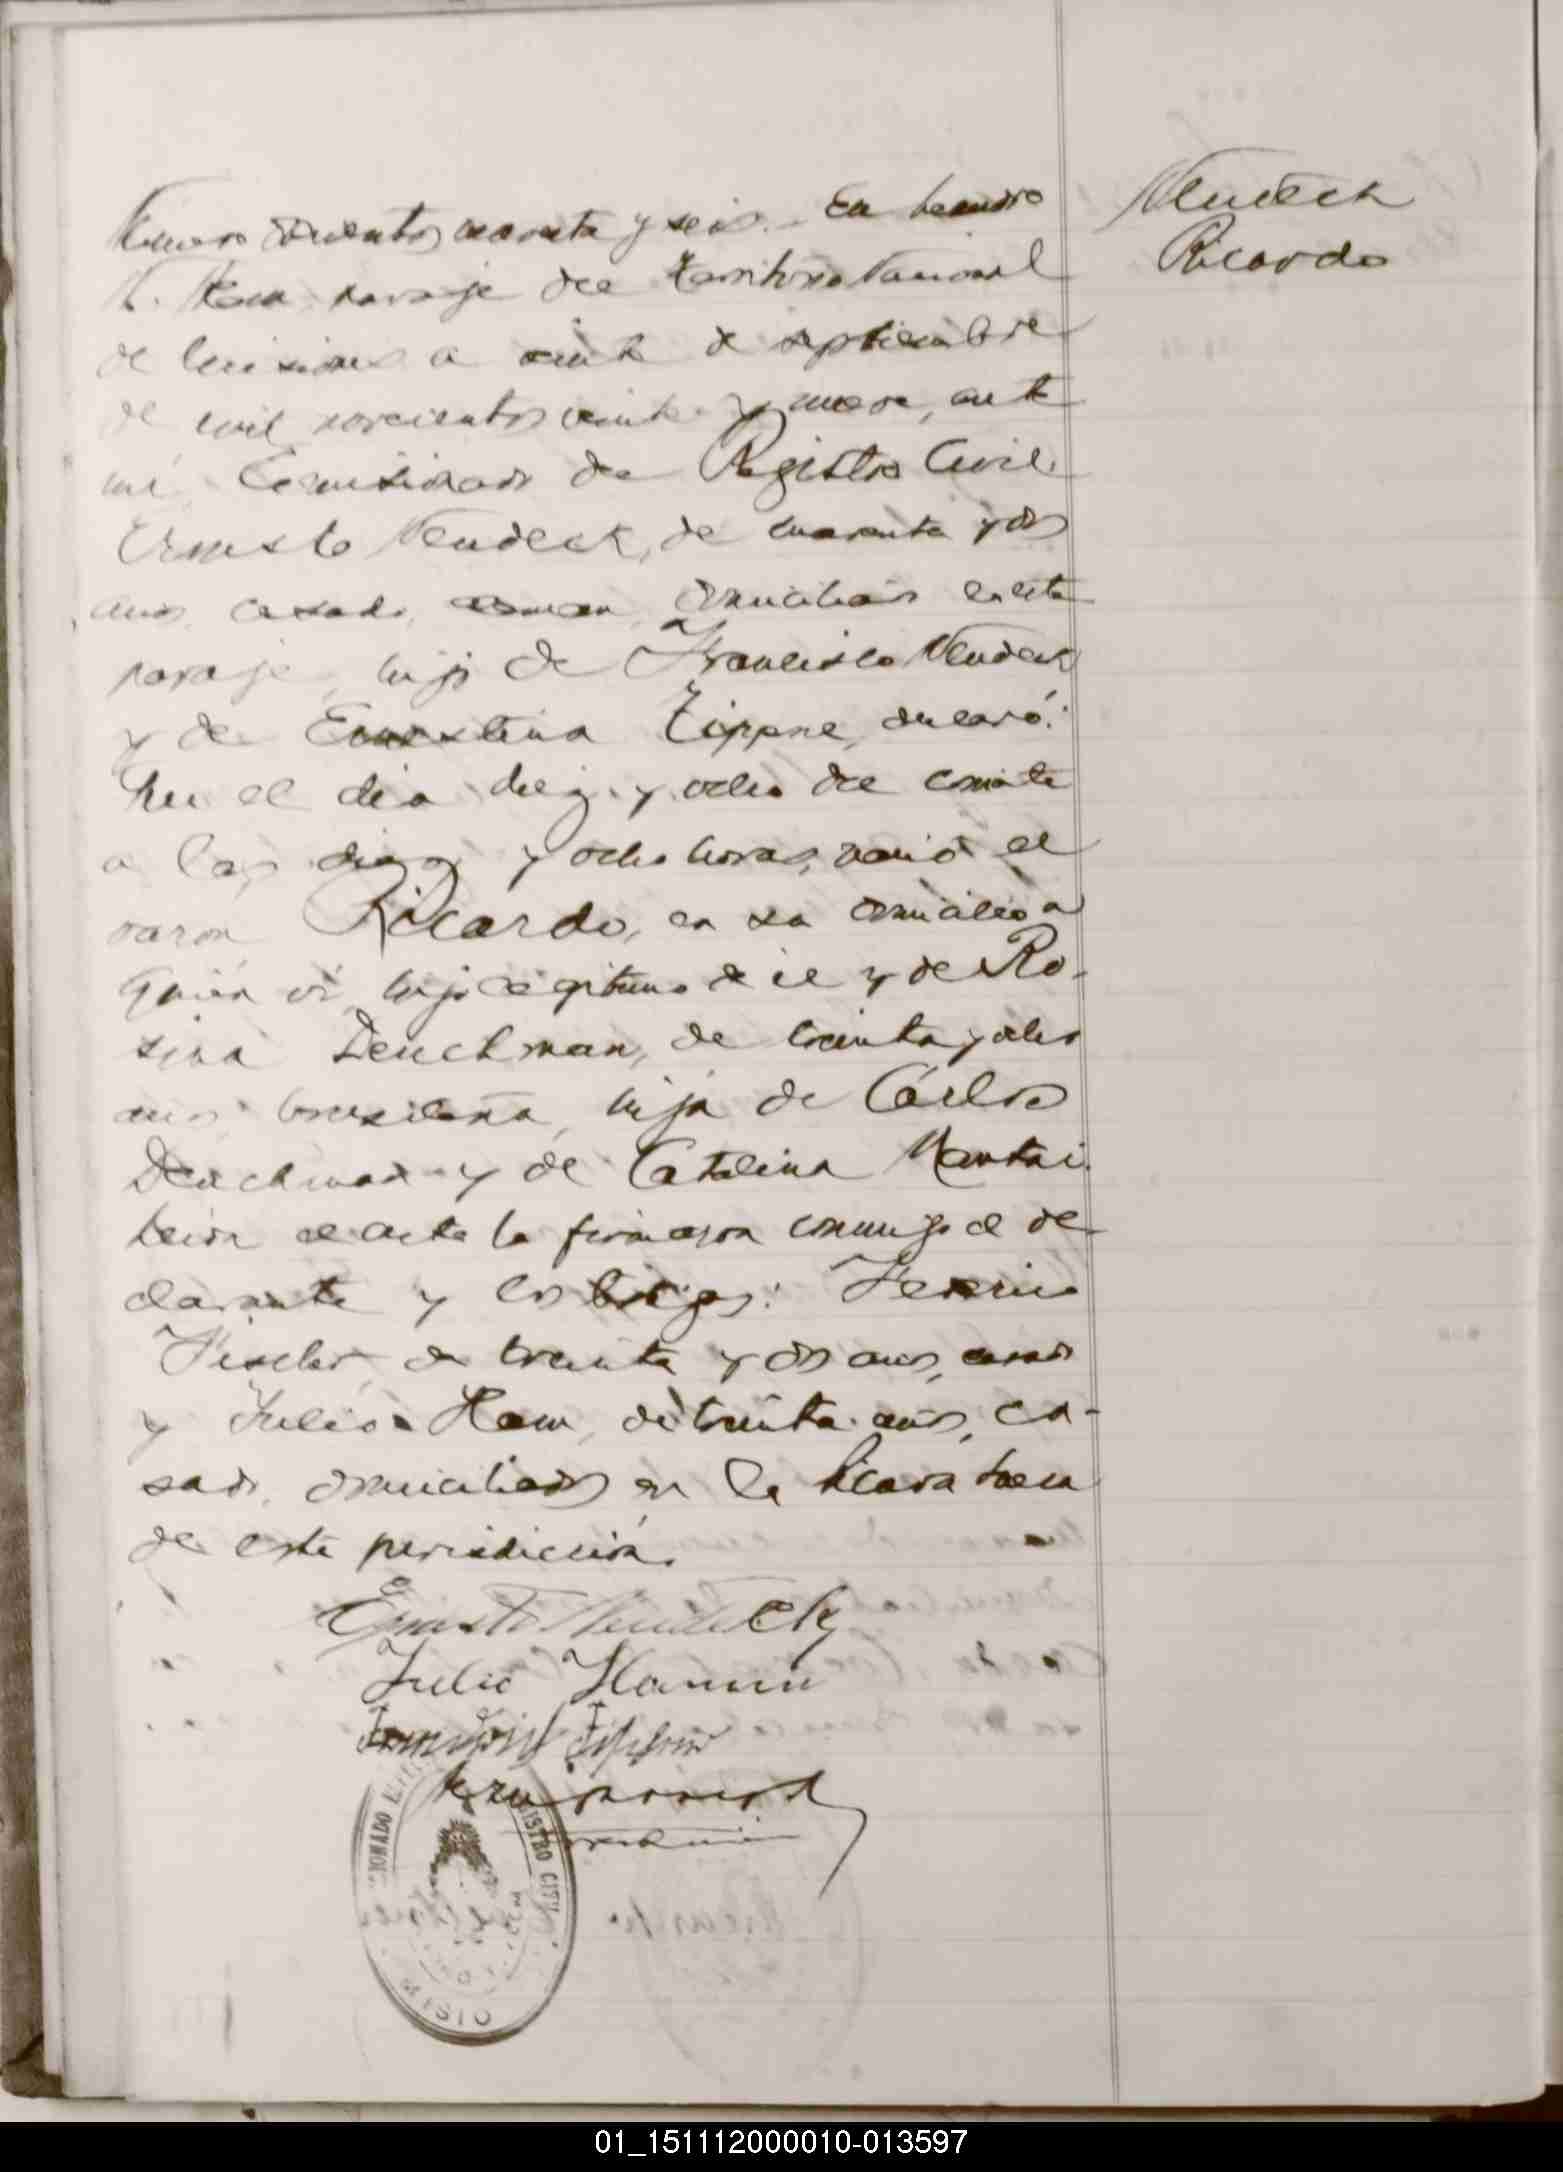 Neudeck
Ricardo
Número doscientos cuarenta y seis.- En Leandro
N. Alem paraje del Territorio Nacional
de Misiones a veinte de septiembre
de mil novecientos veinte y nueve, ante
mí Comisionado de Registro Civil
Ernesto Neudeck, de cuarenta y dos
años, casado, domiciliado en este
paraje, hijo de Francisco Neudeck
y de Ernestina Tippne, declaró:
Que el día diez y ocho del corriente
a las diez y ocho horas, nació el
varón Ricardo, en su domicilio a
quién vi, hijo legitimo de el y de Ro-
sina Deuchman, de treinta y ocho
años brasileña, hija de Cárlos
Deuchman y de Catalina Mantai.
Leida el acta la firmaron conmigo el de-
clarante y los testigos: Federico
Fischer, de treinta y dos años, casado
y Julio Ham, de treinta años, ca-
sado, domiciliados en la Picada
de esta jurisdicción.
Ernesto Neudeck
Julio Hamm
REGISTRO CIVIL
MISIO
01_151112000010-013597